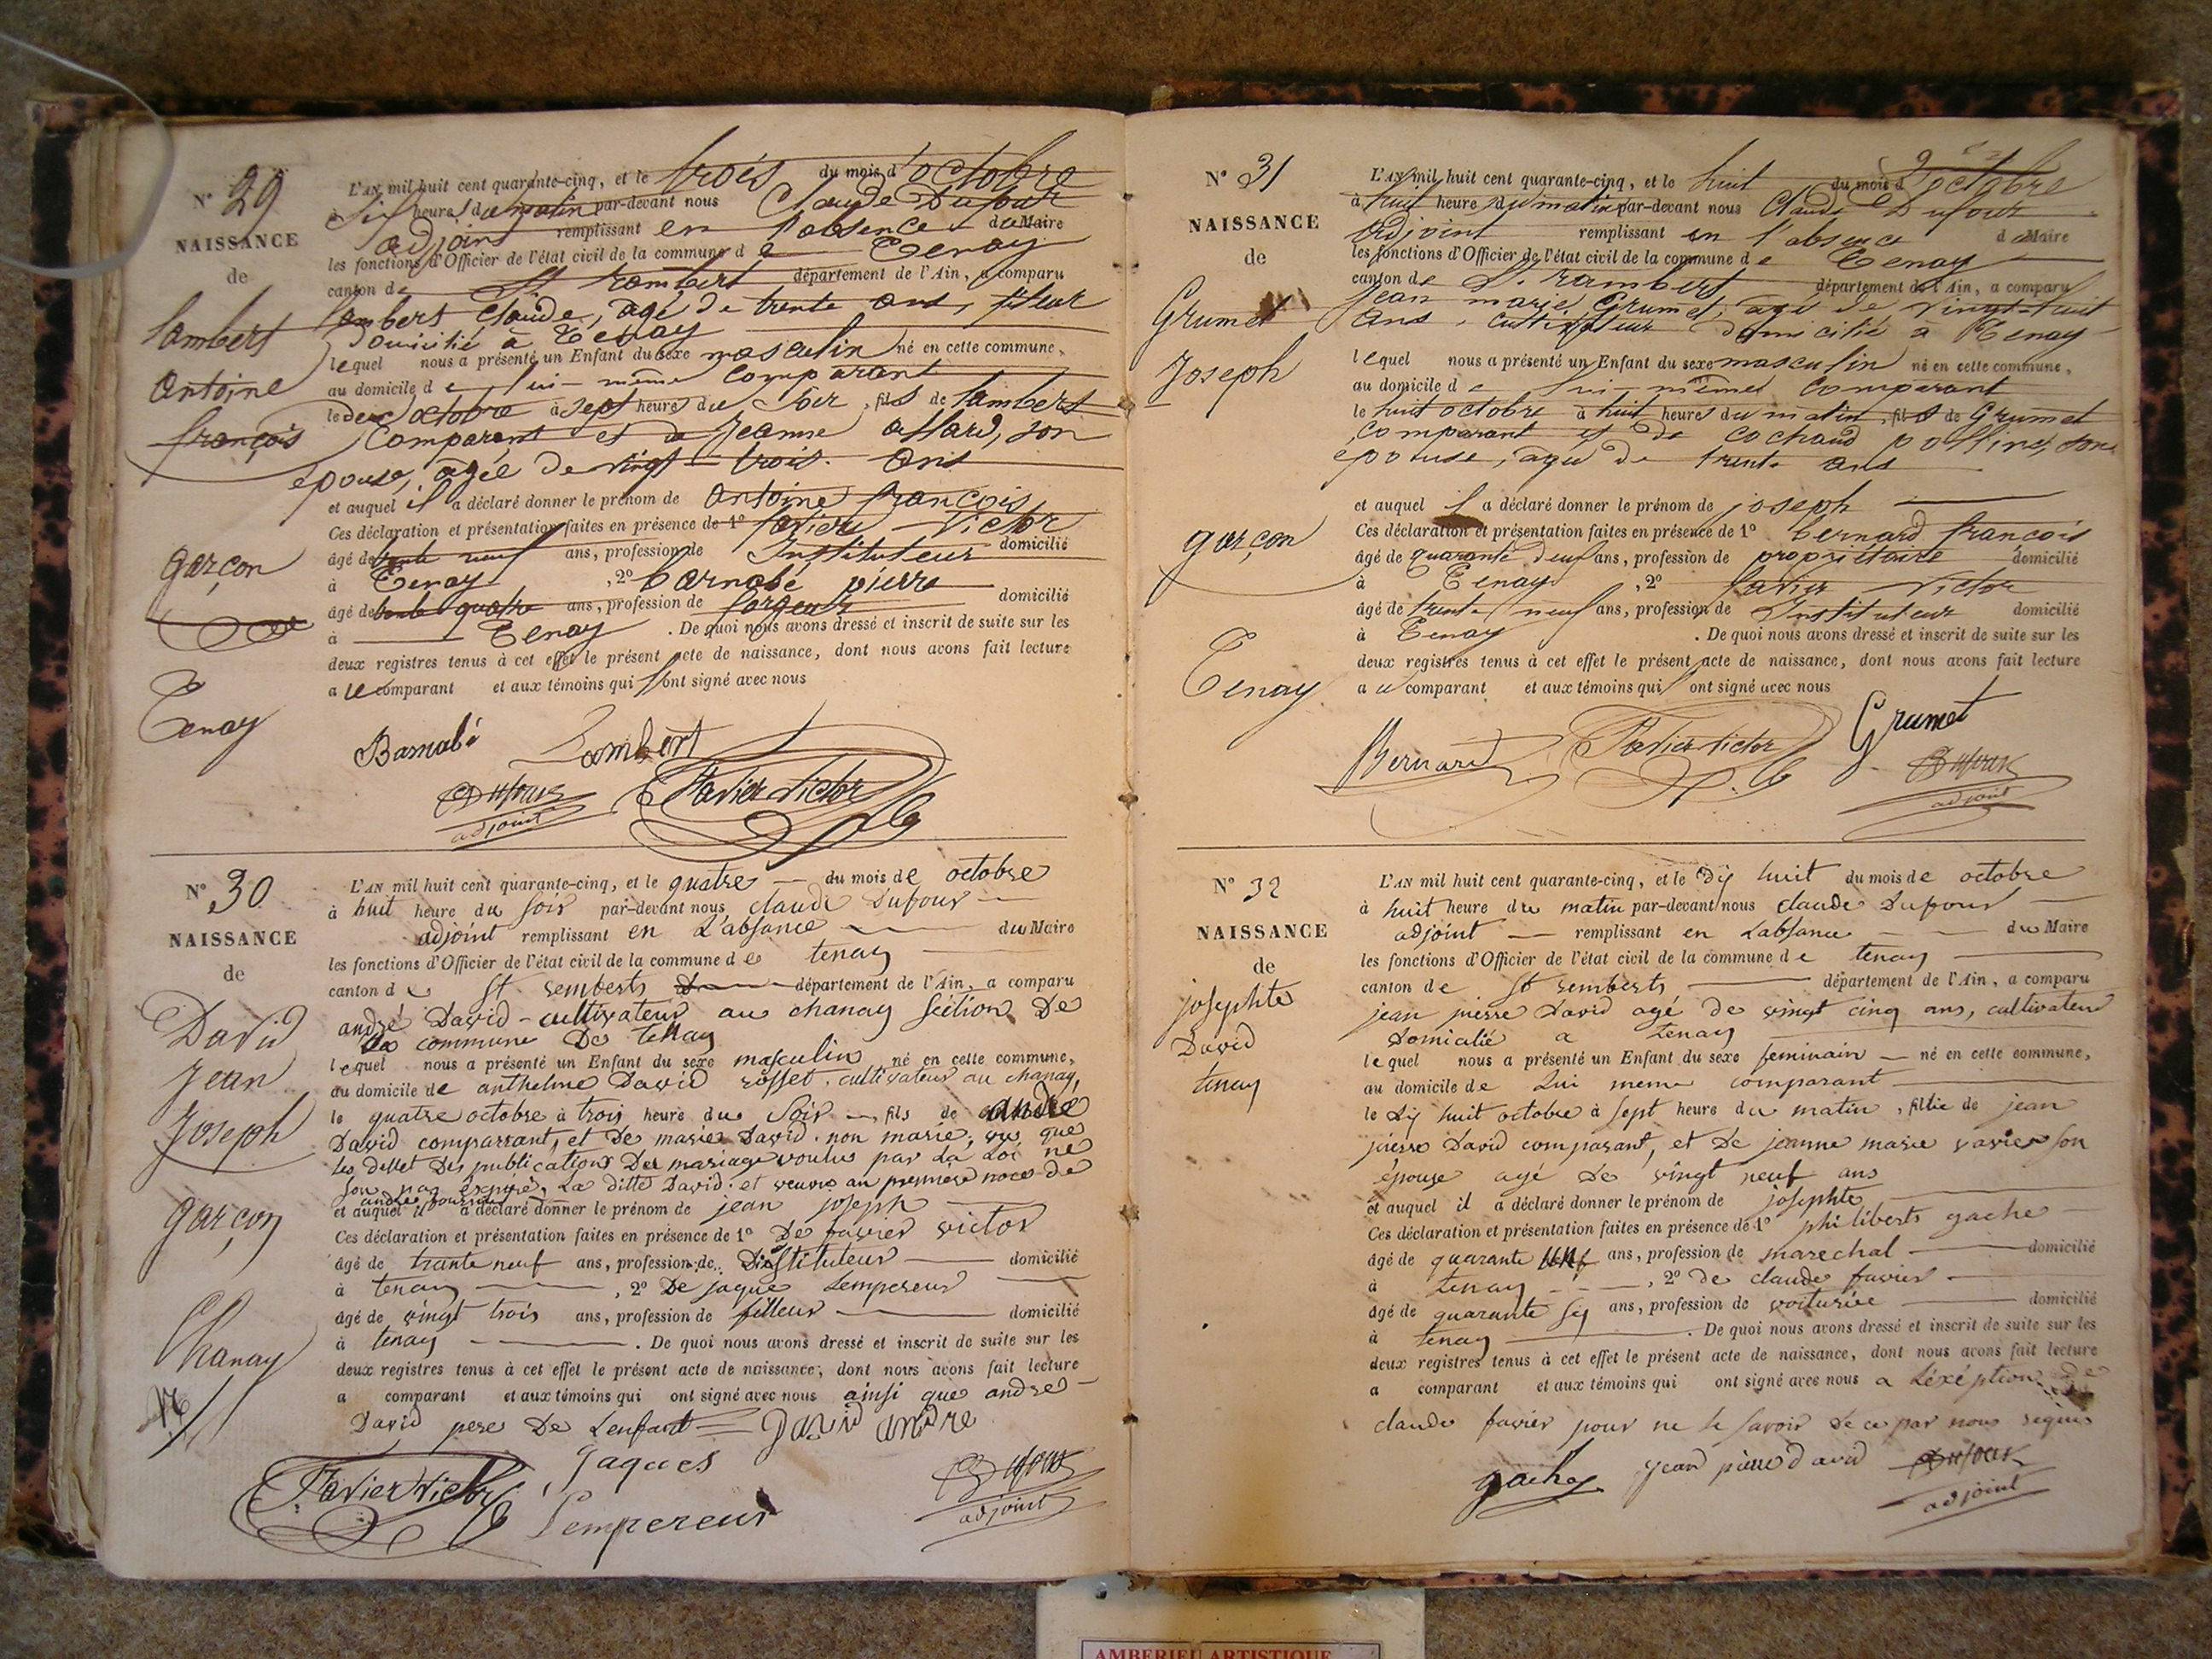 N° 29
NAISSANCE
de
Lambert
Antoine
françois
garçon
Tenay
L'AN mil huit cent quarante-cinq, et le trois du mois d'octobre
heures du matin par-devant nous Claude Dufour
adjoint remplissant en l'absence du Maire
les fonctions d'Officier de l'état civil de la commune de Tenay
canton de St rambert département de l'Ain, a comparu
Lambert Claude, agé de trente ans, fileur
domicilié à Tenay
lequel nous a présenté un Enfant du sexe masculin né en cette commune,
au domicile de lui-même comparant
le deux octobre à sept heure du soir, fils de Lambert
comparant et de Jeanne allard, son
épouse, agée de vingt-trois ans
et auquel il a déclaré donner le prénom de Antoine françois
Ces déclaration et présentation faites en présence de 1° favier Victor
âgé de trente neuf ans, profession de Instituteur domicilié
à Tenay, 2° barnabé pierre
âgé de trente quatre ans, profession de forgeur domicilié
à Tenay. De quoi nous avons dressé et inscrit de suite sur les
deux registres tenus à cet effet le présent acte de naissance, dont nous avons fait lecture
a le comparant et aux témoins qui ont signé avec nous
Barnabé Lambert
Dufour Favier Victor
adjoint
N° 30
NAISSANCE
de
David
Jean
Joseph
garçon
Chanay
L'AN mil huit cent quarante-cinq, et le quatre du mois de octobre
à huit heure du soir par-devant nous claude Dufour
adjoint remplissant en L'absance du Maire
les fonctions d'Officier de l'état civil de la commune de tenay
canton de St remberts département de l'Ain, a comparu
andré David - cultivateur au chanay section De
la commune De tenay
lequel nous a présenté un Enfant du sexe masculin né en cette commune,
au domicile de anthelme David rosset, cultivateur au chanay,
le quatre octobre à trois heure du soir fils de andré
David comparrant, et de marie David non marié, vu que
les dellet Des publications Des mariage voulus par La Loi ne
son pas éxpiré, La ditte David et veuve an premiere noce de
et auquel il a déclaré donner le prénom de jean joseph
Ces déclaration et présentation faites en présence de 1° De favier victor
âgé de trante neuf ans, profession de Distituteur domicilié
à tenay, 2° De jaque Lempereur
âgé de vingt trois ans, profession de filleur domicilié
à tenay. De quoi nous avons dressé et inscrit de suite sur les
deux registres tenus à cet effet le présent acte de naissance, dont nous avons fait lecture
a comparant et aux témoins qui ont signé avec nous ainsi que andre
David pere De Lenfant David andre
Favier Victor Jaques Dufour
Lempereur adjoint
N° 31
NAISSANCE
de
Grumet
Joseph
garçon
Tenay
L'AN mil huit cent quarante-cinq, et le huit du mois d'octobre
à huit heure du matin par-devant nous Claude Dufour
adjoint remplissant en l'absence du Maire
les fonctions d'Officier de l'état civil de la commune de Tenay
canton de St. rambert département de l'Ain, a comparu
Jean marie Grumet, agé de vingt-huit
ans, cultivateur domicilié à Tenay
lequel nous a présenté un Enfant du sexe masculin né en cette commune,
au domicile de lui-même comparant
le huit octobre à huit heures du matin, fils de Grumet
comparant et de cochaud polline, son
épouse, agée de trente ans
et auquel il a déclaré donner le prénom de joseph
Ces déclaration et présentation faites en présence de 1° bernard françois
âgé de quarante deux ans, profession de propriétaire domicilié
à Tenay, 2° favier Victor
âgé de trente neuf ans, profession de Instituteur domicilié
à Tenay. De quoi nous avons dressé et inscrit de suite sur les
deux registres tenus à cet effet le présent acte de naissance, dont nous avons fait lecture
a le comparant et aux témoins qui ont signé avec nous
Bernard Favier Victor Grumet
Dufour
adjoint
N° 32
NAISSANCE
de
josephte
David
tenay
L'AN mil huit cent quarante-cinq, et le dix huit du mois de octobre
à huit heure du matin par-devant nous claude Dufour
adjoint remplissant en Labsance du Maire
les fonctions d'Officier de l'état civil de la commune de tenay
canton de St remberts département de l'Ain, a comparu
jean pierre David agé de vingt cinq ans, cultivateur
Domicilié a tenay
lequel nous a présenté un Enfant du sexe feminain né en cette commune,
au domicile de Lui meme comparant
le dix huit octobre à sept heure du matin, fillie de jean
pierre David comparant, et De jeanne marie favier son
épouse agé De vingt neuf ans
et auquel il a déclaré donner le prénom de josephte
Ces déclaration et présentation faites en présence de 1° philiberts gache
âgé de quarante neuf ans, profession de marechal domicilié
à tenay, 2° de claude favier
âgé de quarante six ans, profession de voituriée domicilié
à tenay. De quoi nous avons dressé et inscrit de suite sur les
deux registres tenus à cet effet le présent acte de naissance, dont nous avons fait lecture
a comparant et aux témoins qui ont signé avec nous a Léxéption de
claude favier pour ne le savoir de ce par nous requis
gache jean pierre david Dufour
adjoint
AMBERIEU ARTISTIQUE